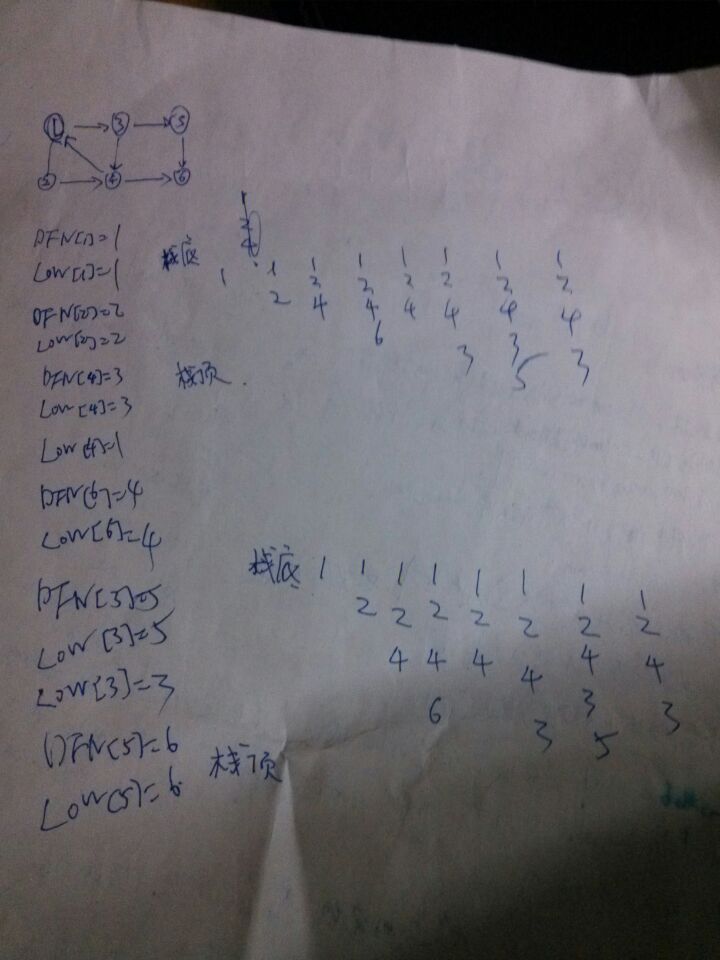 1 3 5
2 4 6
DFN[1]=1
LOW[1]=1
DFN[2]=2
LOW[2]=2
DFN[4]=3
LOW[4]=3
LOW[4]=1
DFN[6]=4
LOW[6]=4
DFN[3]=5
LOW[3]=5
LOW[3]=3
DFN[5]=6
LOW[5]=6
栈底 1 1 1 1 1 1 1 1
2 2 2 2 2 2 2
4 4 4 4 4 4
6 3 3
栈顶 5 3
栈底 1 1 1 1 1 1 1 1
2 2 2 2 2 2 2
4 4 4 4 4 4
6 3 3 3
栈顶 5